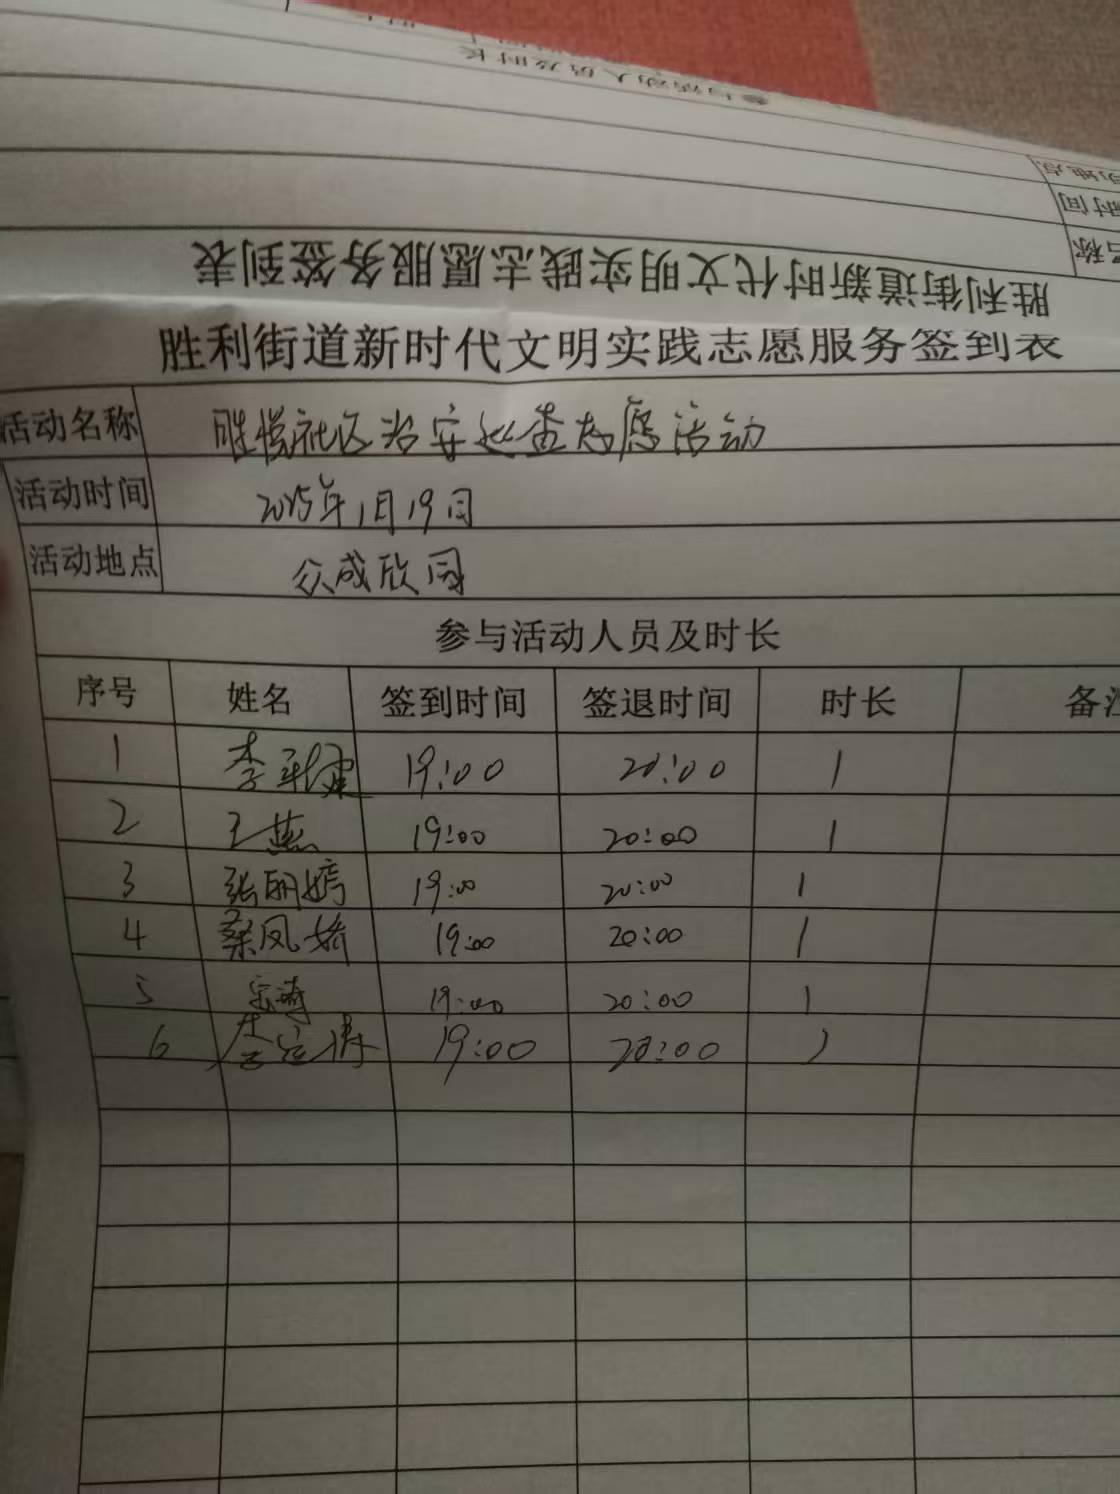 参与活动人员及时长
胜利街道新时代文明实践志愿服务签到表
胜利街道新时代文明实践志愿服务签到表
活动名称 胜悦社区治安巡查志愿活动
活动时间 2025年1月19日
活动地点 众成欣园
参与活动人员及时长
序号 姓名 签到时间 签退时间 时长 备注
1 19:00 20:00 1
2 王燕 19:00 20:00 1
3 张丽婷 19:00 20:00 1
4 桑凤娇 19:00 20:00 1
5 19:00 20:00 1
6 19:00 20:00 1